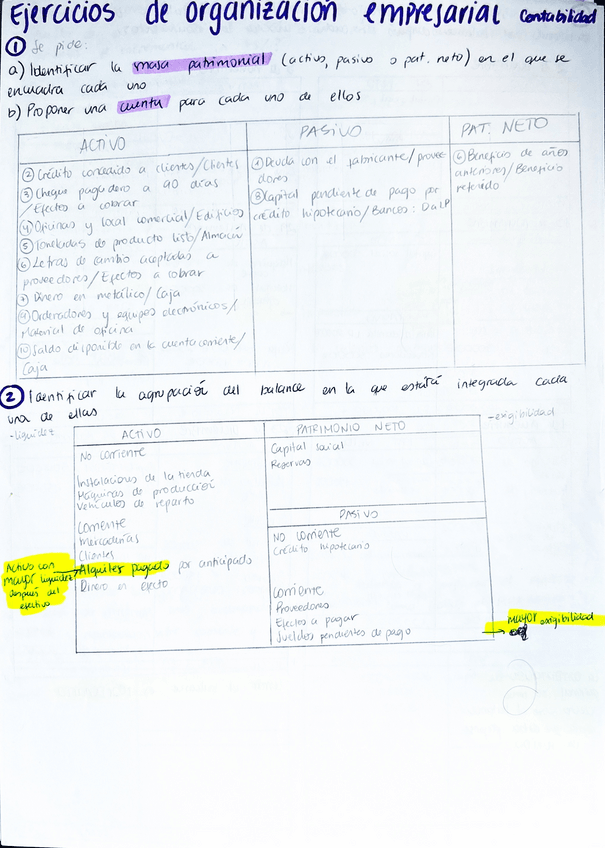 Ejercicios de organización empresarial Contabilidad
① Se pide:
a) Identificar la masa patrimonial (activo, pasivo o pat. neto) en el que se
encuadra cada uno
b) Proponer una cuenta para cada uno de ellos
ACTIVO
② Crédito concedido a clientes/Clientes
③ Cheque pagadero a 90 días
/Efectos a cobrar
④ Oficinas y local comercial/Edificios
⑤ Toneladas de producto listo/Almacén
⑥ Letras de cambio aceptadas a
proveedores/Efectos a cobrar
⑦ Dinero en metálico/Caja
⑨ Ordenadores y equipos electrónicos/
Material de oficina
⑩ Saldo disponible en la cuenta corriente/
Caja
PASIVO
① Deuda con el fabricante/provee-
dores
⑧ Capital pendiente de pago por
crédito hipotecario/Bancos: D a LP
PAT. NETO
⑥ Beneficio de años
anteriores/Beneficio
retenido
② Identificar la agrupación del balance en la que estará integrada cada
una de ellas
-liquidez
ACTIVO
No corriente
Instalaciones de la tienda
Máquinas de producción
Vehículos de reparto
Corriente
Mercaderías
Clientes
Alquiler pagado por anticipado
Dinero en efecto
Activo con
mayor liquidez
después del
efectivo
-exigibilidad
PATRIMONIO NETO
Capital social
Reservas
PASIVO
No corriente
Crédito hipotecario
Corriente
Proveedores
Efectos a pagar
Sueldos pendientes de pago
Mayor exigibilidad